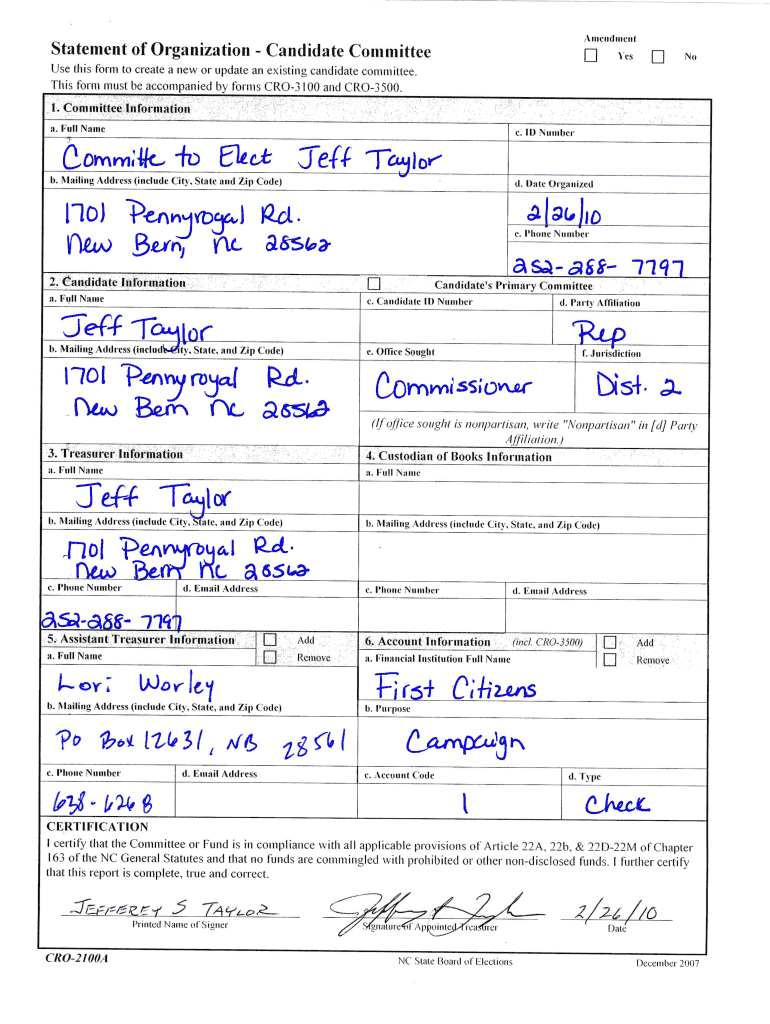 Amendment
Statement of Organization - Candidate Committee
Yes No
Use this form to create a new or update an existing candidate committee.
This form must be accompanied by forms CRO-3100 and CRO-3500.
1. Committee Information
a. Full Name
c. ID Number
Committe to Elect Jeff Taylor
b. Mailing Address (include City, State and Zip Code)
d. Date Organized
1701 Pennyroyal Rd.
2/26/10
New Bern, nc 28562
e. Phone Number
252-288-7797
2. Candidate Information
Candidate's Primary Committee
a. Full Name
c. Candidate ID Number
d. Party Affiliation
Jeff Taylor
Rep
b. Mailing Address (include City, State, and Zip Code)
e. Office Sought
f. Jurisdiction
1701 Pennyroyal Rd.
Commissioner
Dist. 2
New Bern nc 28562
(If office sought is nonpartisan, write "Nonpartisan" in [d] Party
Affiliation.)
3. Treasurer Information
4. Custodian of Books Information
a. Full Name
a. Full Name
Jeff Taylor
b. Mailing Address (include City, State, and Zip Code)
b. Mailing Address (include City, State, and Zip Code)
1701 Pennyroyal Rd.
New Bern nc 28562
c. Phone Number
d. Email Address
c. Phone Number
d. Email Address
252-288-7797
5. Assistant Treasurer Information
Add
6. Account Information (incl. CRO-3500)
Add
a. Full Name
Remove
a. Financial Institution Full Name
Remove
Lori Worley
First Citizens
b. Mailing Address (include City, State, and Zip Code)
b. Purpose
PO Box 12631, NB 28561
Campaign
c. Phone Number
d. Email Address
c. Account Code
d. Type
638-6268
1
Check
CERTIFICATION
I certify that the Committee or Fund is in compliance with all applicable provisions of Article 22A, 22b, & 22D-22M of Chapter
163 of the NC General Statutes and that no funds are commingled with prohibited or other non-disclosed funds. I further certify
that this report is complete, true and correct.
JEFFEREY S TAYLOR
2/26/10
Printed Name of Signer
Signature of Appointed Treasurer
Date
CRO-2100A
NC State Board of Elections
December 2007